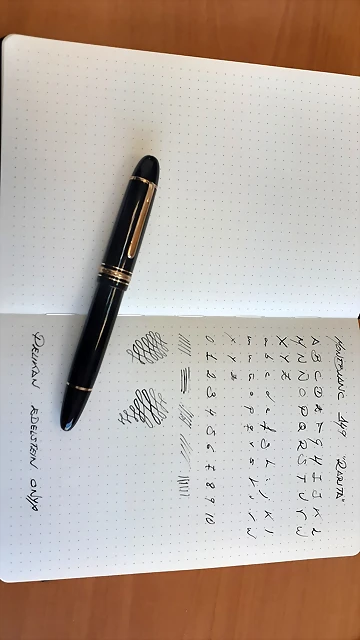 MONTBLANC 149 "RABITA"
A B C D E F G H I J K L
M N O P Q R S T U V W
X Y Z
a b c d e f g h i j k l
m n o p q r s t u v w
x y z
0 1 2 3 4 5 6 7 8 9 10
PELIKAN EDELSTEIN ONYX